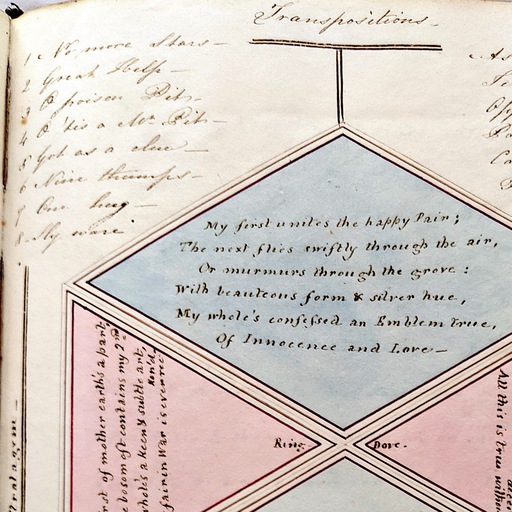 Transpositions.
1 No more Stars
2 Great Help
3 O poison Pit
4 O 'tis a Mr. Pit
5 Got as a clue
6 Nine thumps
7 One hug
8 My ware
My first unites the happy Pair;
The next flies swiftly through the air,
Or murmurs through the grove:
With beauteous form & silver hue,
My whole's confessed an Emblem true,
Of Innocence and Love
rst of mother earth's a part,
e bosom oft contains my 2nd
whole's a keen & subtle art,
fair in War is
Ring
Dove.
All this is true